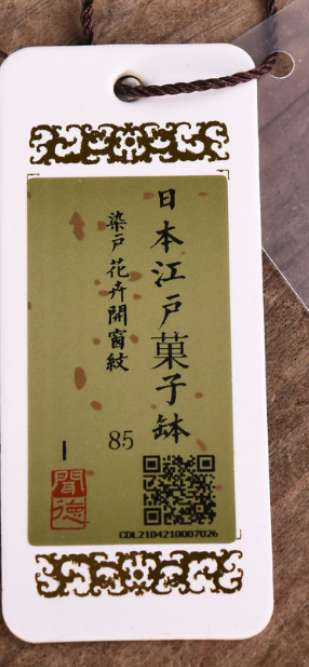 日本江戸菓子鉢
染戸花卉開窗紋
85
聞德
CDL2104210007026